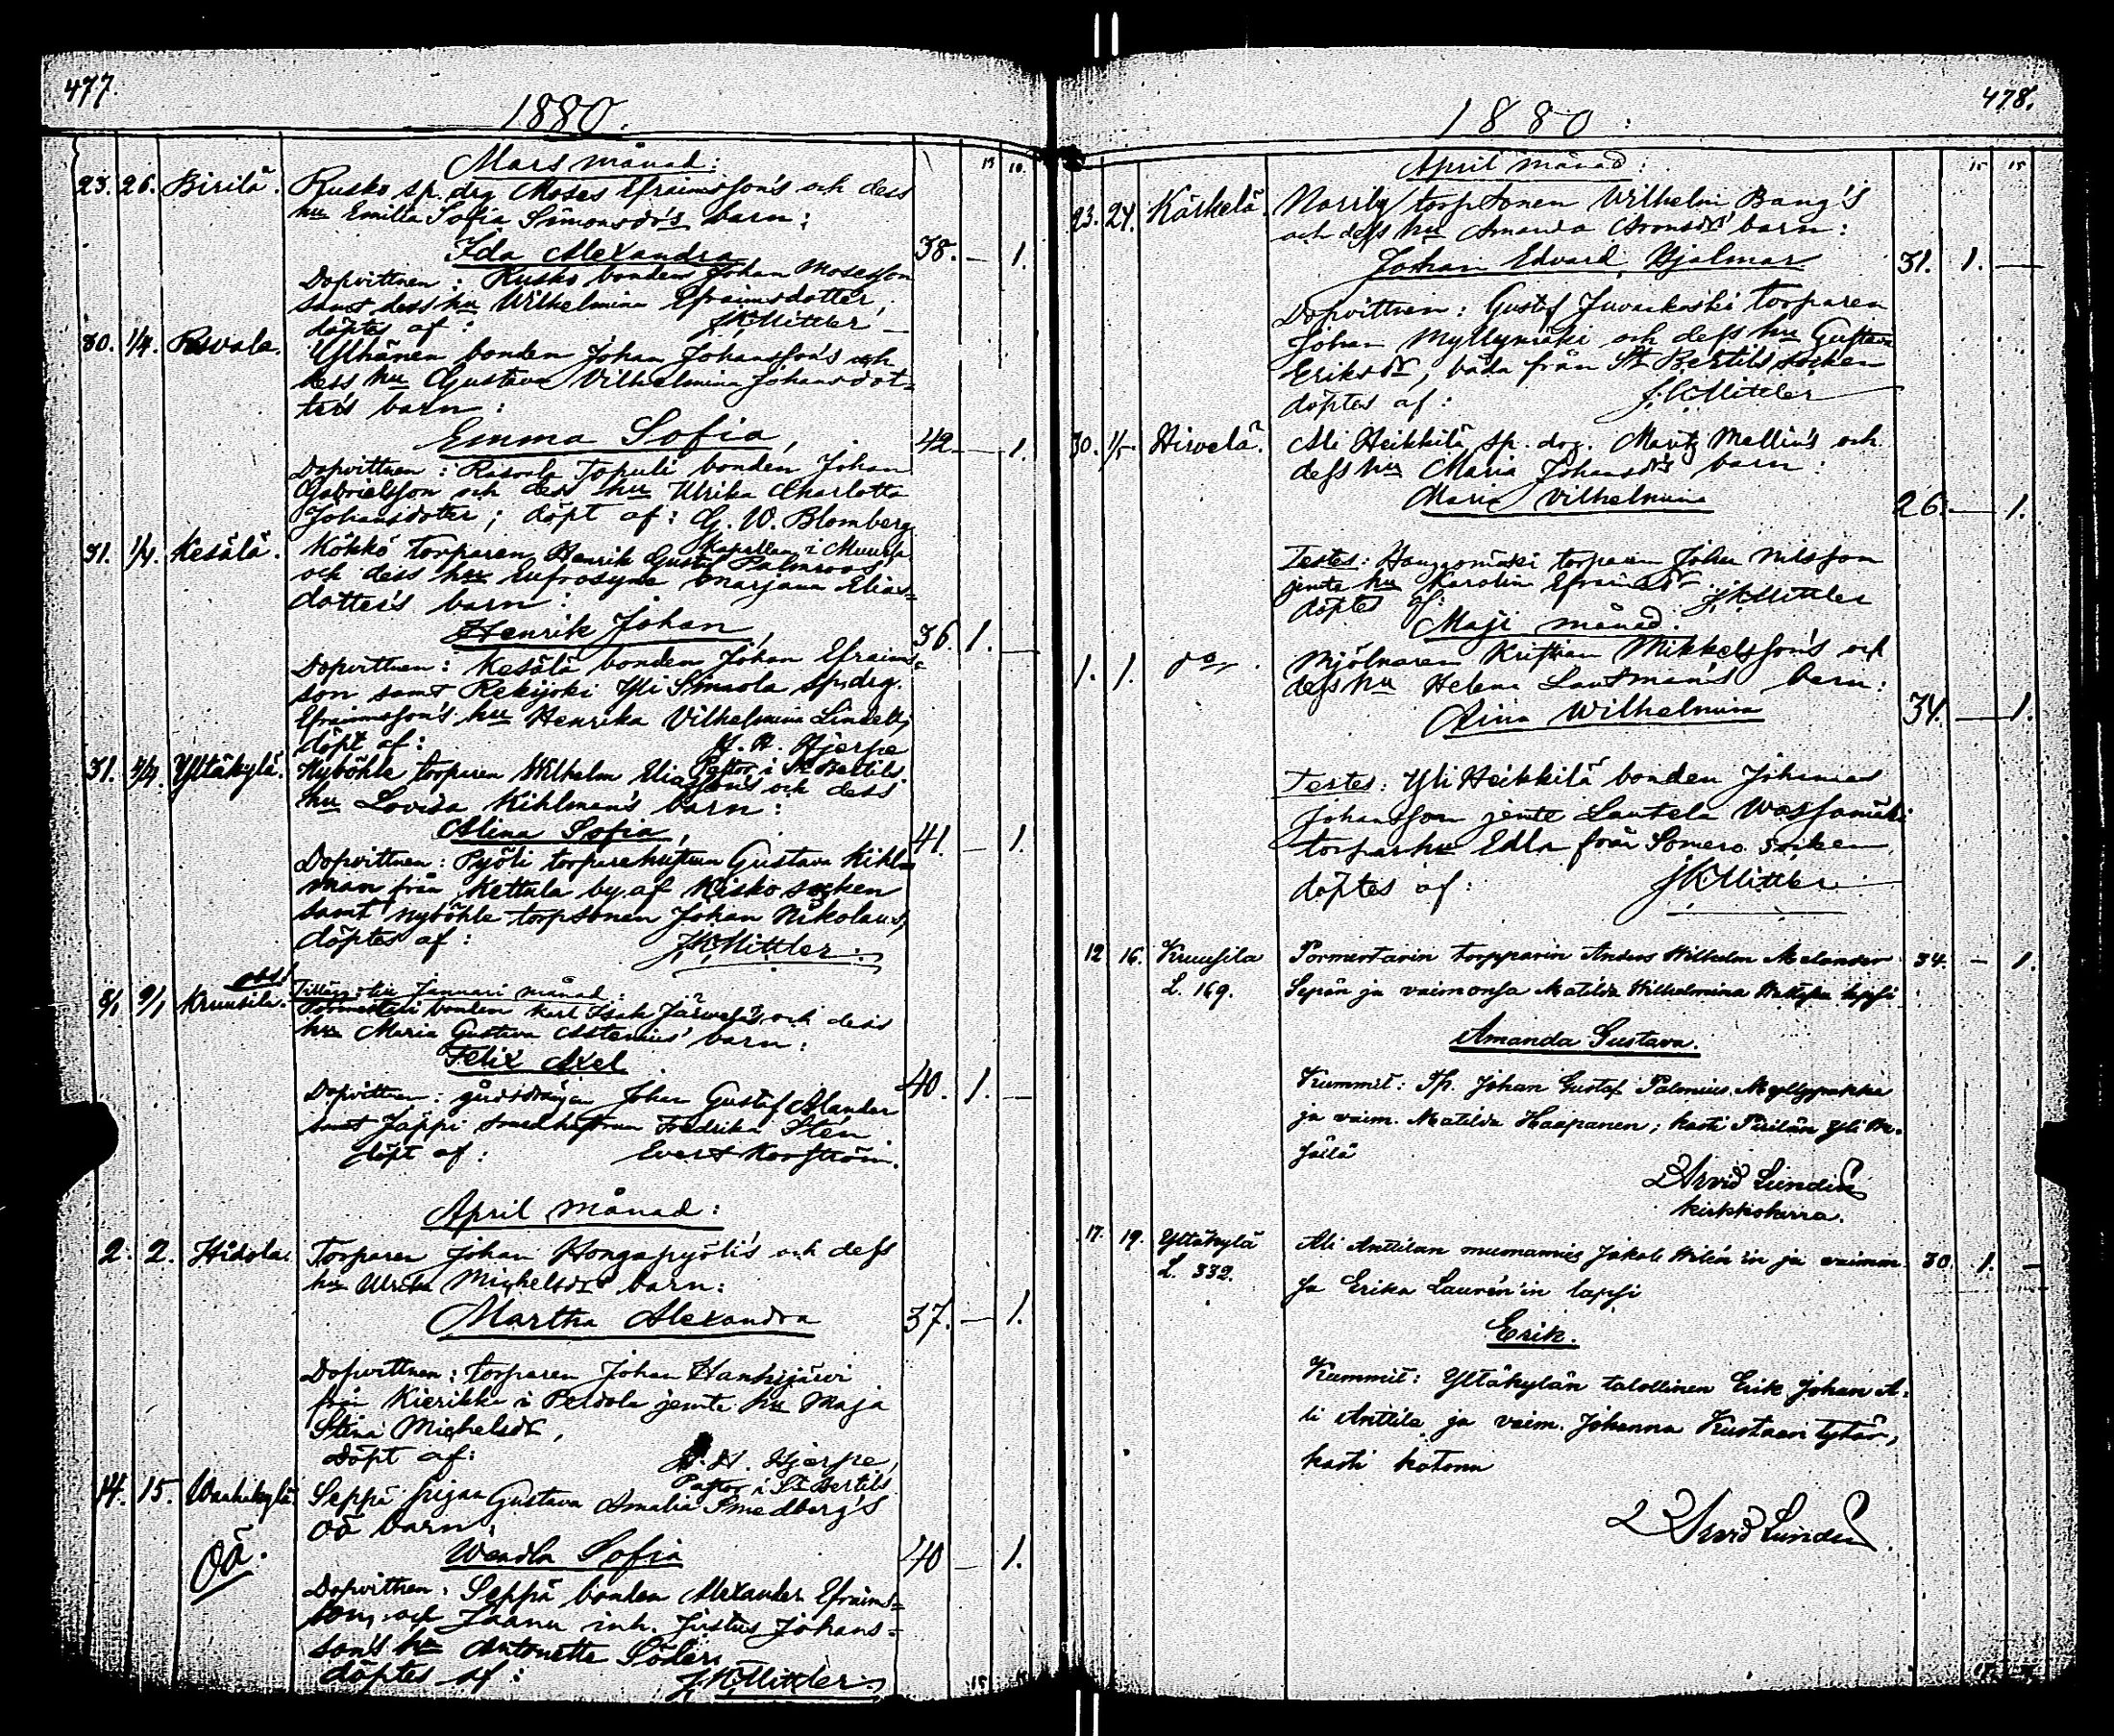 477.
1880.
Mars månad:
13 10.
23. 26. Birilä. Rusko sp. drg Moses Efraimsson's och dess
hu Emilia Sofia Simonsdr's barn:
Ida Alexandra 38. — 1.
Dopvittnen: Rusko bonden Johan Mosesson
samt dess hu Wilhelmina Efraimsdotter,
döptes af: J K Mittler
30. 1/4. Rasvala. Ylhänen bonden Johan Johansson's och
dess hu Gustava Vilhelmina Johansdot=
ter's barn:
Emma Sofia, 42. — 1.
Dopvittnen: Rasvala Topuli bonden Johan
Gabrielsson och dess hu Ulrika Charlotta
Johansdotter; döpt af: G. W. Blomberg
Kapellan i Muurla
31. 1/4. Kesälä. Kökkö torparen Henrik Gustaf Palmroos'
och dess hu Eufrosyne Marjana Elias=
dotter's barn:
Henrik Johan, 36. 1. —
Dopvittnen: Kesälä bonden Johan Efraims=
son samt Rekijoki Yli Simola sp. drg.
Efraimsson's hu Henrika Vilhelmina Lindell;
döpt af: H. H. Hjerpe
Pastor i St Bertils.
31. 4/4. Yltäkylä. Nyböhle torparen Wilhelm Eliasson's och dess
hu Lovisa Kihlman's barn:
Alina Sofia, 41. — 1.
Dopvittnen: Pyöli torparehustrun Gustava Kihl=
man från Kettula by af Kisko socken
samt Nyböhle torpsonen Johan Nikolaus,
döptes af: J K Mittler.
obs!
Tillägg till Januari månad:
8/1 9/1 Kruusila. Tormentali bonden Karl Isak Järvelä's och dess
hu Maria Gustava Astenius' barn:
Felix Axel 40. 1. —
Dopvittnen: gårdsdrängen Johan Gustaf Alander
samt Jäppi smedhustrun Fredrika Stén
döpt af: Evert Korström.
April månad:
2. 2. Hidola. Torparen Johan Hongapyöli's och dess
hu Ulrika Michelsdrs barn:
Martha Alexandra 37. — 1.
Dopvittnen: torparen Johan Hanhijärvi
från Kierikka i Pertola jemte hu Maja
Stina Michelsdr,
döpt af: H. H. Hjerpe,
Pastor i St Bertils
14. 15. Wanhakylä. Seppä pigan Gustava Amalia Smedberg's
oä barn:
oä. Wendla Sofia 40 — 1.
Dopvittnen: Seppä bonden Alexander Efraims=
son, och Jaanu inh. Justus Johans=
son's hu Antonette Söder.
döptes af: J. K. Mittler
478.
1880:
April månad:
15 15
23. 24. Kärkelä. Norrby torpsonen Wilhelm Bang's
och dess hu Amanda Aronsdrs barn:
Johan Edvard Hjalmar 31. 1. —
Dopvittnen: Gustaf Juvankoski torparen
Johan Myllymäki och dess hu Gustava
Eriksdr, båda från St Bertils socken
döptes af: J. K. Mittler
30. 1/5 Hirvelä. Ali Heikkilä sp. drg. Maritz Mellin's och
dess hu Maria Johansdr's barn:
Maria Vilhelmina 26. — 1.
Testes: torparen Johan Nilsson
jemte hu Karolin Efraimsdr
döptes af: J. K. Mittler
Maji månad:
1. 1. do. Mjölnaren Kristian Mikkelsson's och
dess hu Helena Lautman's barn:
Aina Wilhelmina 34. — 1.
Testes: Yli Heikkilä bonden Johannes
Johansson jemte Lautela
torparhu Edla från Somero socken
döptes af: J K Mittler
12 16. Kruusila Pormestarin torpparin Anders Wilhelm Melander 34. — 1.
L. 169. Sepän ja vaimonsa Matilda Wilhelmina lapsi
Amanda Gustava.
Kummit: Tp. Johan Gustaf Palenius Myllynpakka
ja vaim. Matilda Haapanen; kasti Pirilän Yli Ke-
sälä
Arvid Lundén
kirkkoherra.
17. 19. Yltäkylä Ali Anttilan muonamies Jakob Wilén'in ja vaimon- 30. 1. —
L. 332. sa Erika Laurén'in lapsi
Erik.
Kummit: Yltäkylän talollinen Erik Johan A-
li Anttila ja vaim. Johanna Kustaan tytär,
kasti kotona
Arvid Lundén